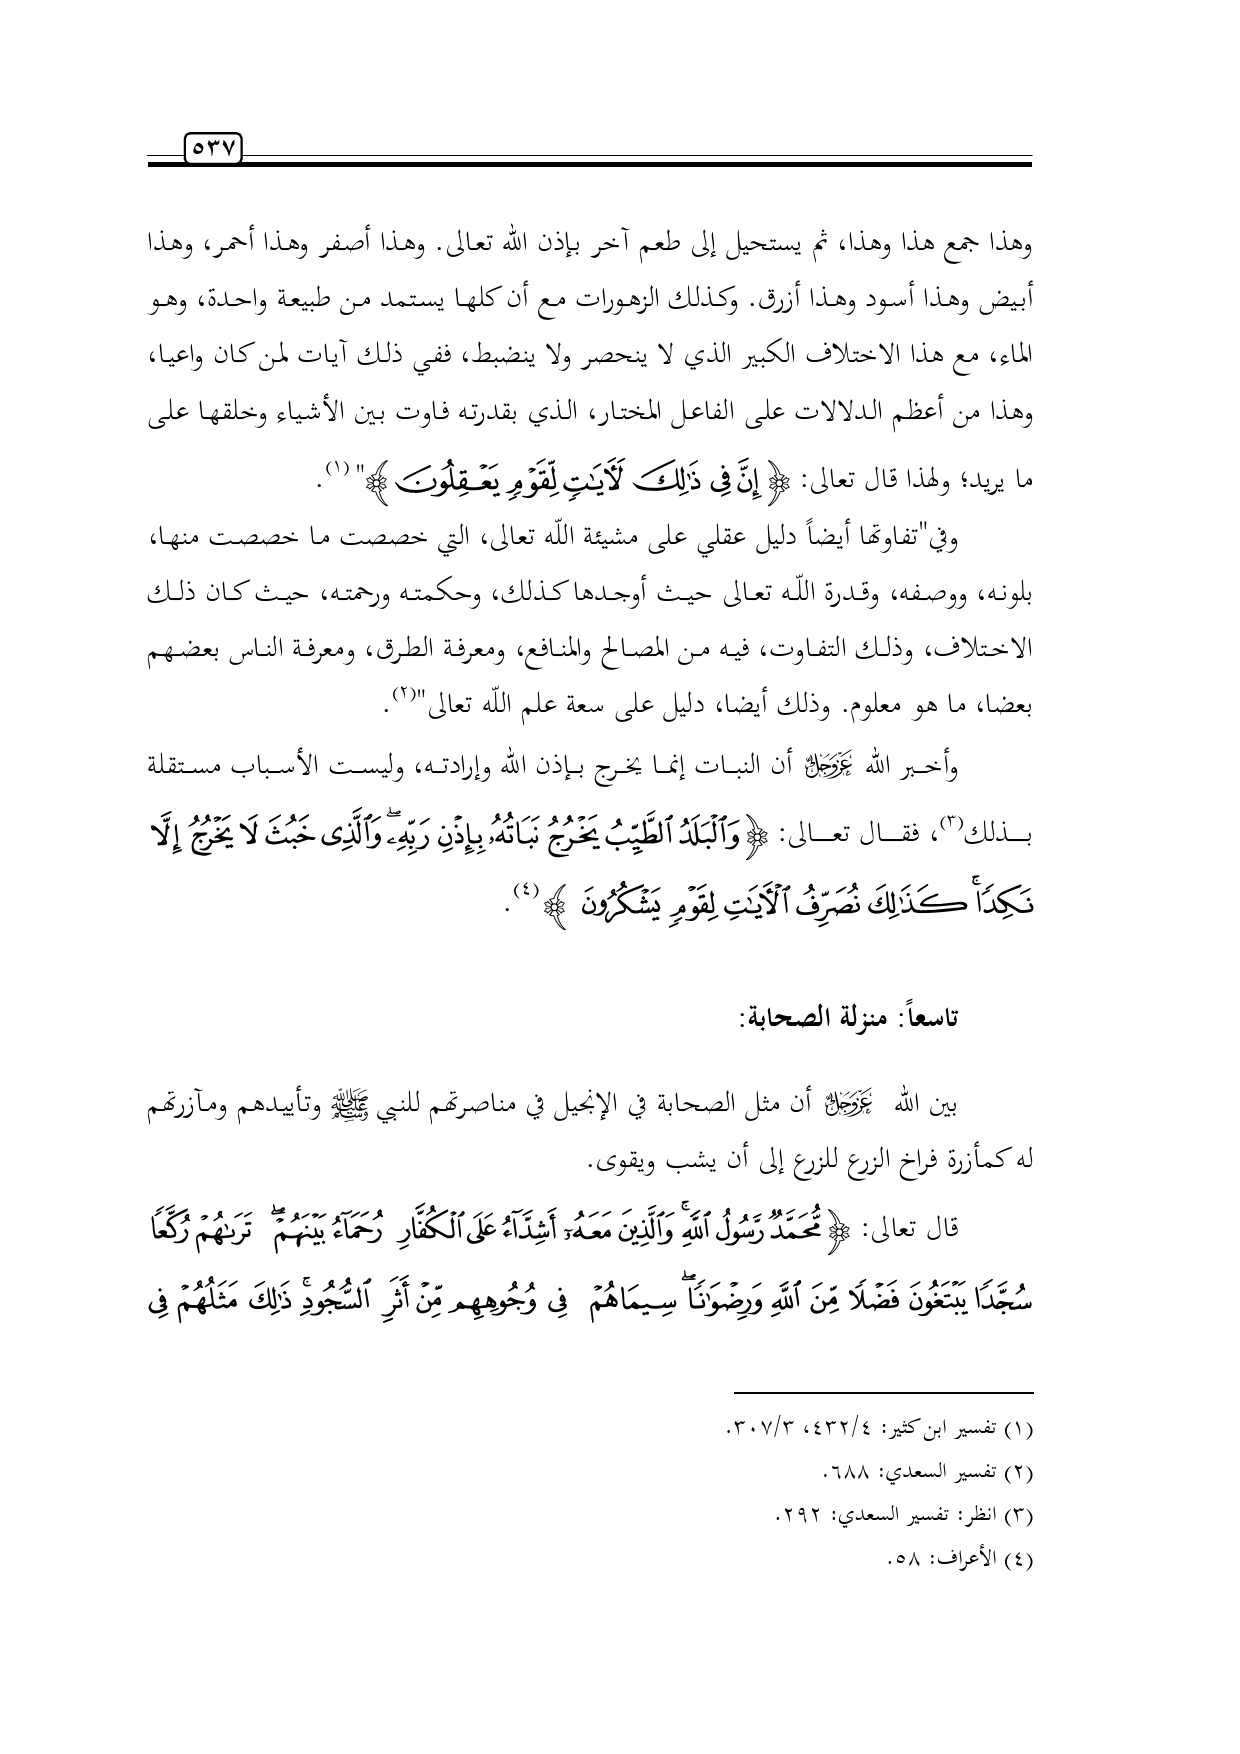 ٥٣٧
وهذا جمع هذا وهذا، ثم يستحيل إلى طعم آخر بإذن الله تعالى. وهذا أصفر وهذا أحمر، وهذا
أبيض وهذا أسود وهذا أزرق. وكذلك الزهورات مع أن كلها يستمد من طبيعة واحدة، وهو
الماء، مع هذا الاختلاف الكبير الذي لا ينحصر ولا ينضبط، ففي ذلك آيات لمن كان واعيا،
وهذا من أعظم الدلالات على الفاعل المختار، الذي بقدرته فاوت بين الأشياء وخلقها على
ما يريد؛ ولهذا قال تعالى: ﴿ إِنَّ فِي ذَٰلِكَ لَآيَٰتٍ لِّقَوْمٍ يَعْقِلُونَ ﴾" (١).
وفي"تفاوتها أيضاً دليل عقلي على مشيئة اللّه تعالى، التي خصصت ما خصصت منها،
بلونه، ووصفه، وقدرة اللّه تعالى حيث أوجدها كذلك، وحكمته ورحمته، حيث كان ذلك
الاختلاف، وذلك التفاوت، فيه من المصالح والمنافع، ومعرفة الطرق، ومعرفة الناس بعضهم
بعضا، ما هو معلوم. وذلك أيضا، دليل على سعة علم اللّه تعالى"(٢).
وأخبر الله عَزَّوَجَلَّ أن النبات إنما يخرج بإذن الله وإرادته، وليست الأسباب مستقلة
بذلك(٣)، فقال تعالى: ﴿ وَٱلْبَلَدُ ٱلطَّيِّبُ يَخْرُجُ نَبَاتُهُۥ بِإِذْنِ رَبِّهِۦۖ وَٱلَّذِى خَبُثَ لَا يَخْرُجُ إِلَّا
نَكِدًاۚ كَذَٰلِكَ نُصَرِّفُ ٱلْآيَٰتِ لِقَوْمٍ يَشْكُرُونَ ﴾(٤).
تاسعاً: منزلة الصحابة:
بين الله عَزَّوَجَلَّ أن مثل الصحابة في الإنجيل في مناصرتهم للنبي ﷺ وتأييدهم ومآزرتهم
له كمأزرة فراخ الزرع للزرع إلى أن يشب ويقوى.
قال تعالى: ﴿ مُّحَمَّدٌ رَّسُولُ ٱللَّهِۚ وَٱلَّذِينَ مَعَهُۥٓ أَشِدَّآءُ عَلَى ٱلْكُفَّارِ رُحَمَآءُ بَيْنَهُمْۖ تَرَىٰهُمْ رُكَّعًا
سُجَّدًا يَبْتَغُونَ فَضْلًا مِّنَ ٱللَّهِ وَرِضْوَٰنًاۖ سِيمَاهُمْ فِى وُجُوهِهِم مِّنْ أَثَرِ ٱلسُّجُودِۚ ذَٰلِكَ مَثَلُهُمْ فِى
(١) تفسير ابن كثير: ٤٣٢/٤، ٣٠٧/٣.
(٢) تفسير السعدي: ٦٨٨.
(٣) انظر: تفسير السعدي: ٢٩٢.
(٤) الأعراف: ٥٨.